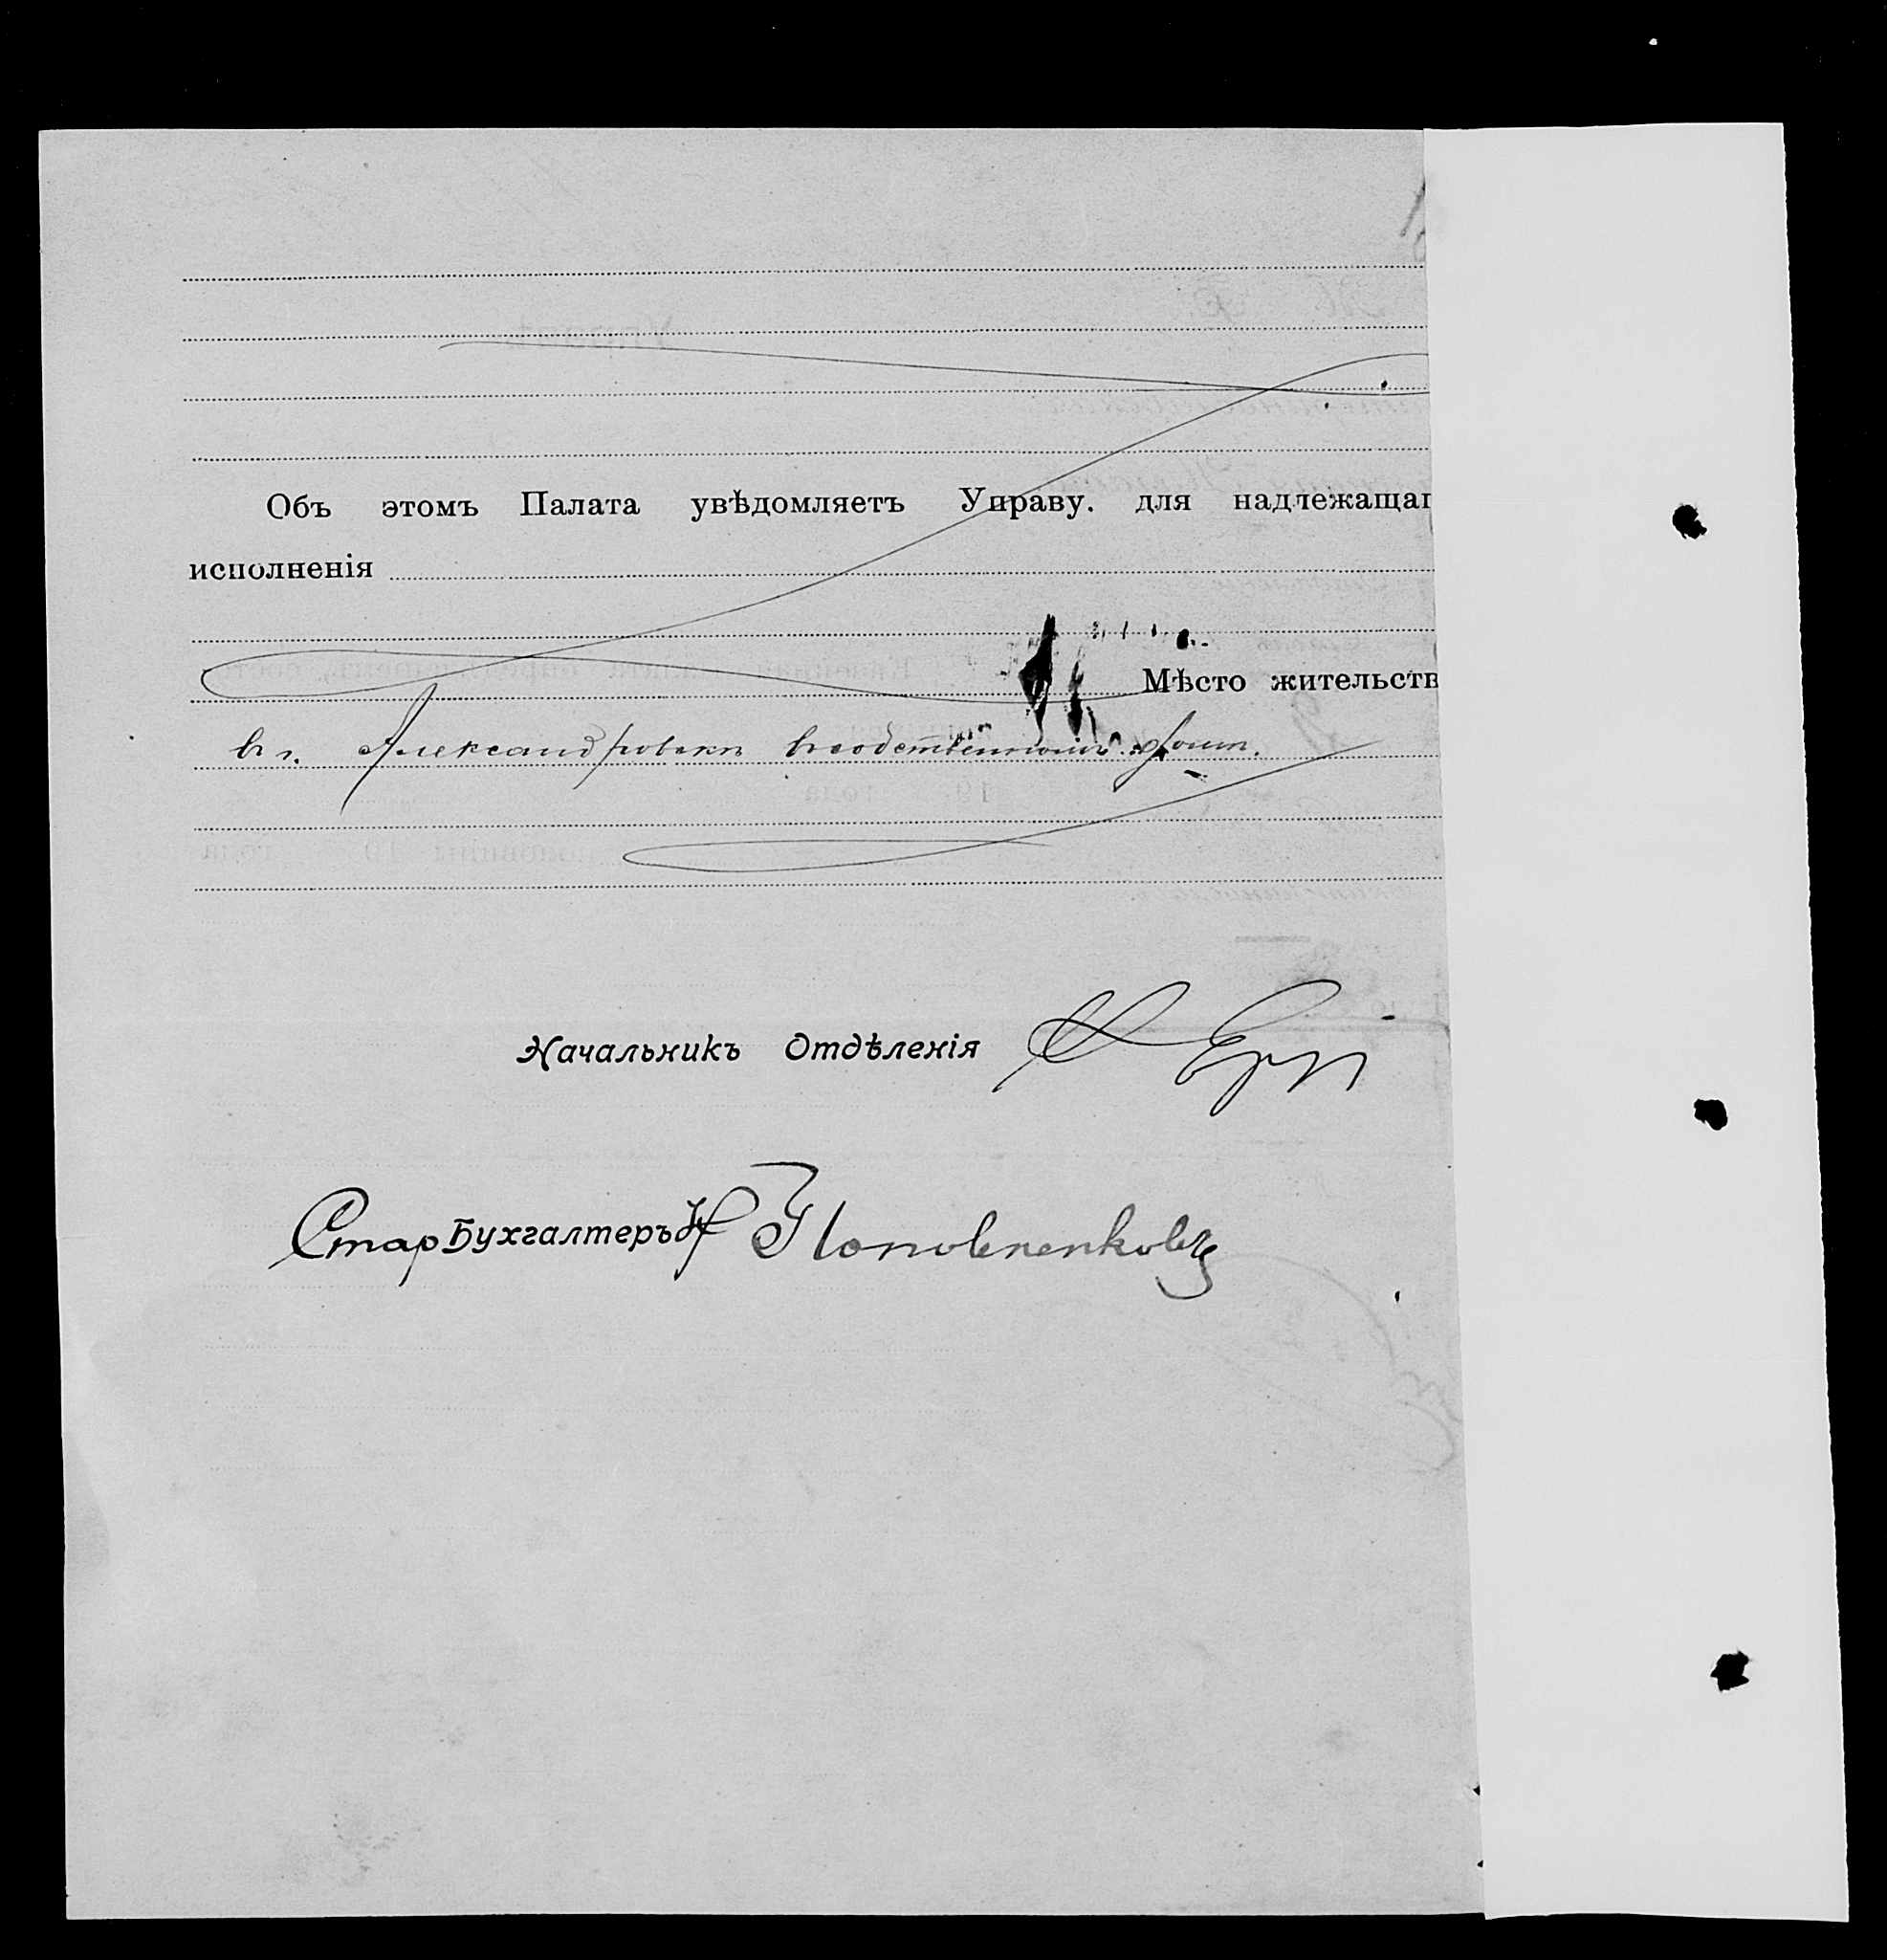 Объ этомъ Палата увѣдомляетъ Управу. для надлежащаг
исполненія
Мѣсто жительств
въ г. Александровскѣ въ собственномъ домѣ.
Начальникъ Отдѣленія
Стар Бухгалтеръ